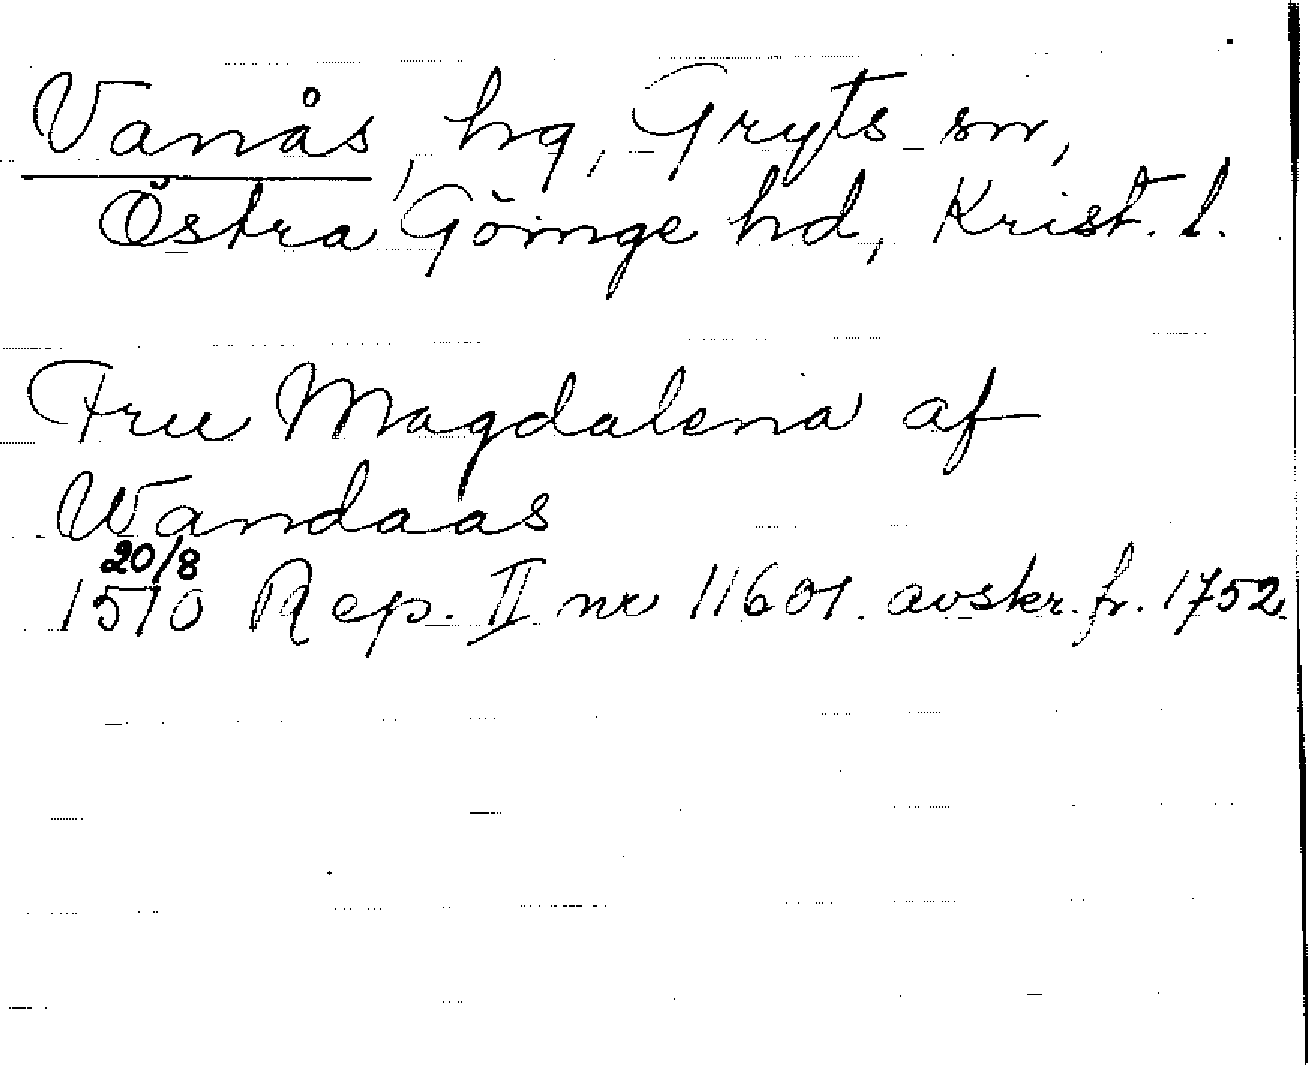 Vanås, hg, Gryts sn,
Östra Göinge hd, Krist. l.
Fru Magdalena af
Wandaas
20/8
1510 Rep. II nr 11601. avskr. fr. 1752.